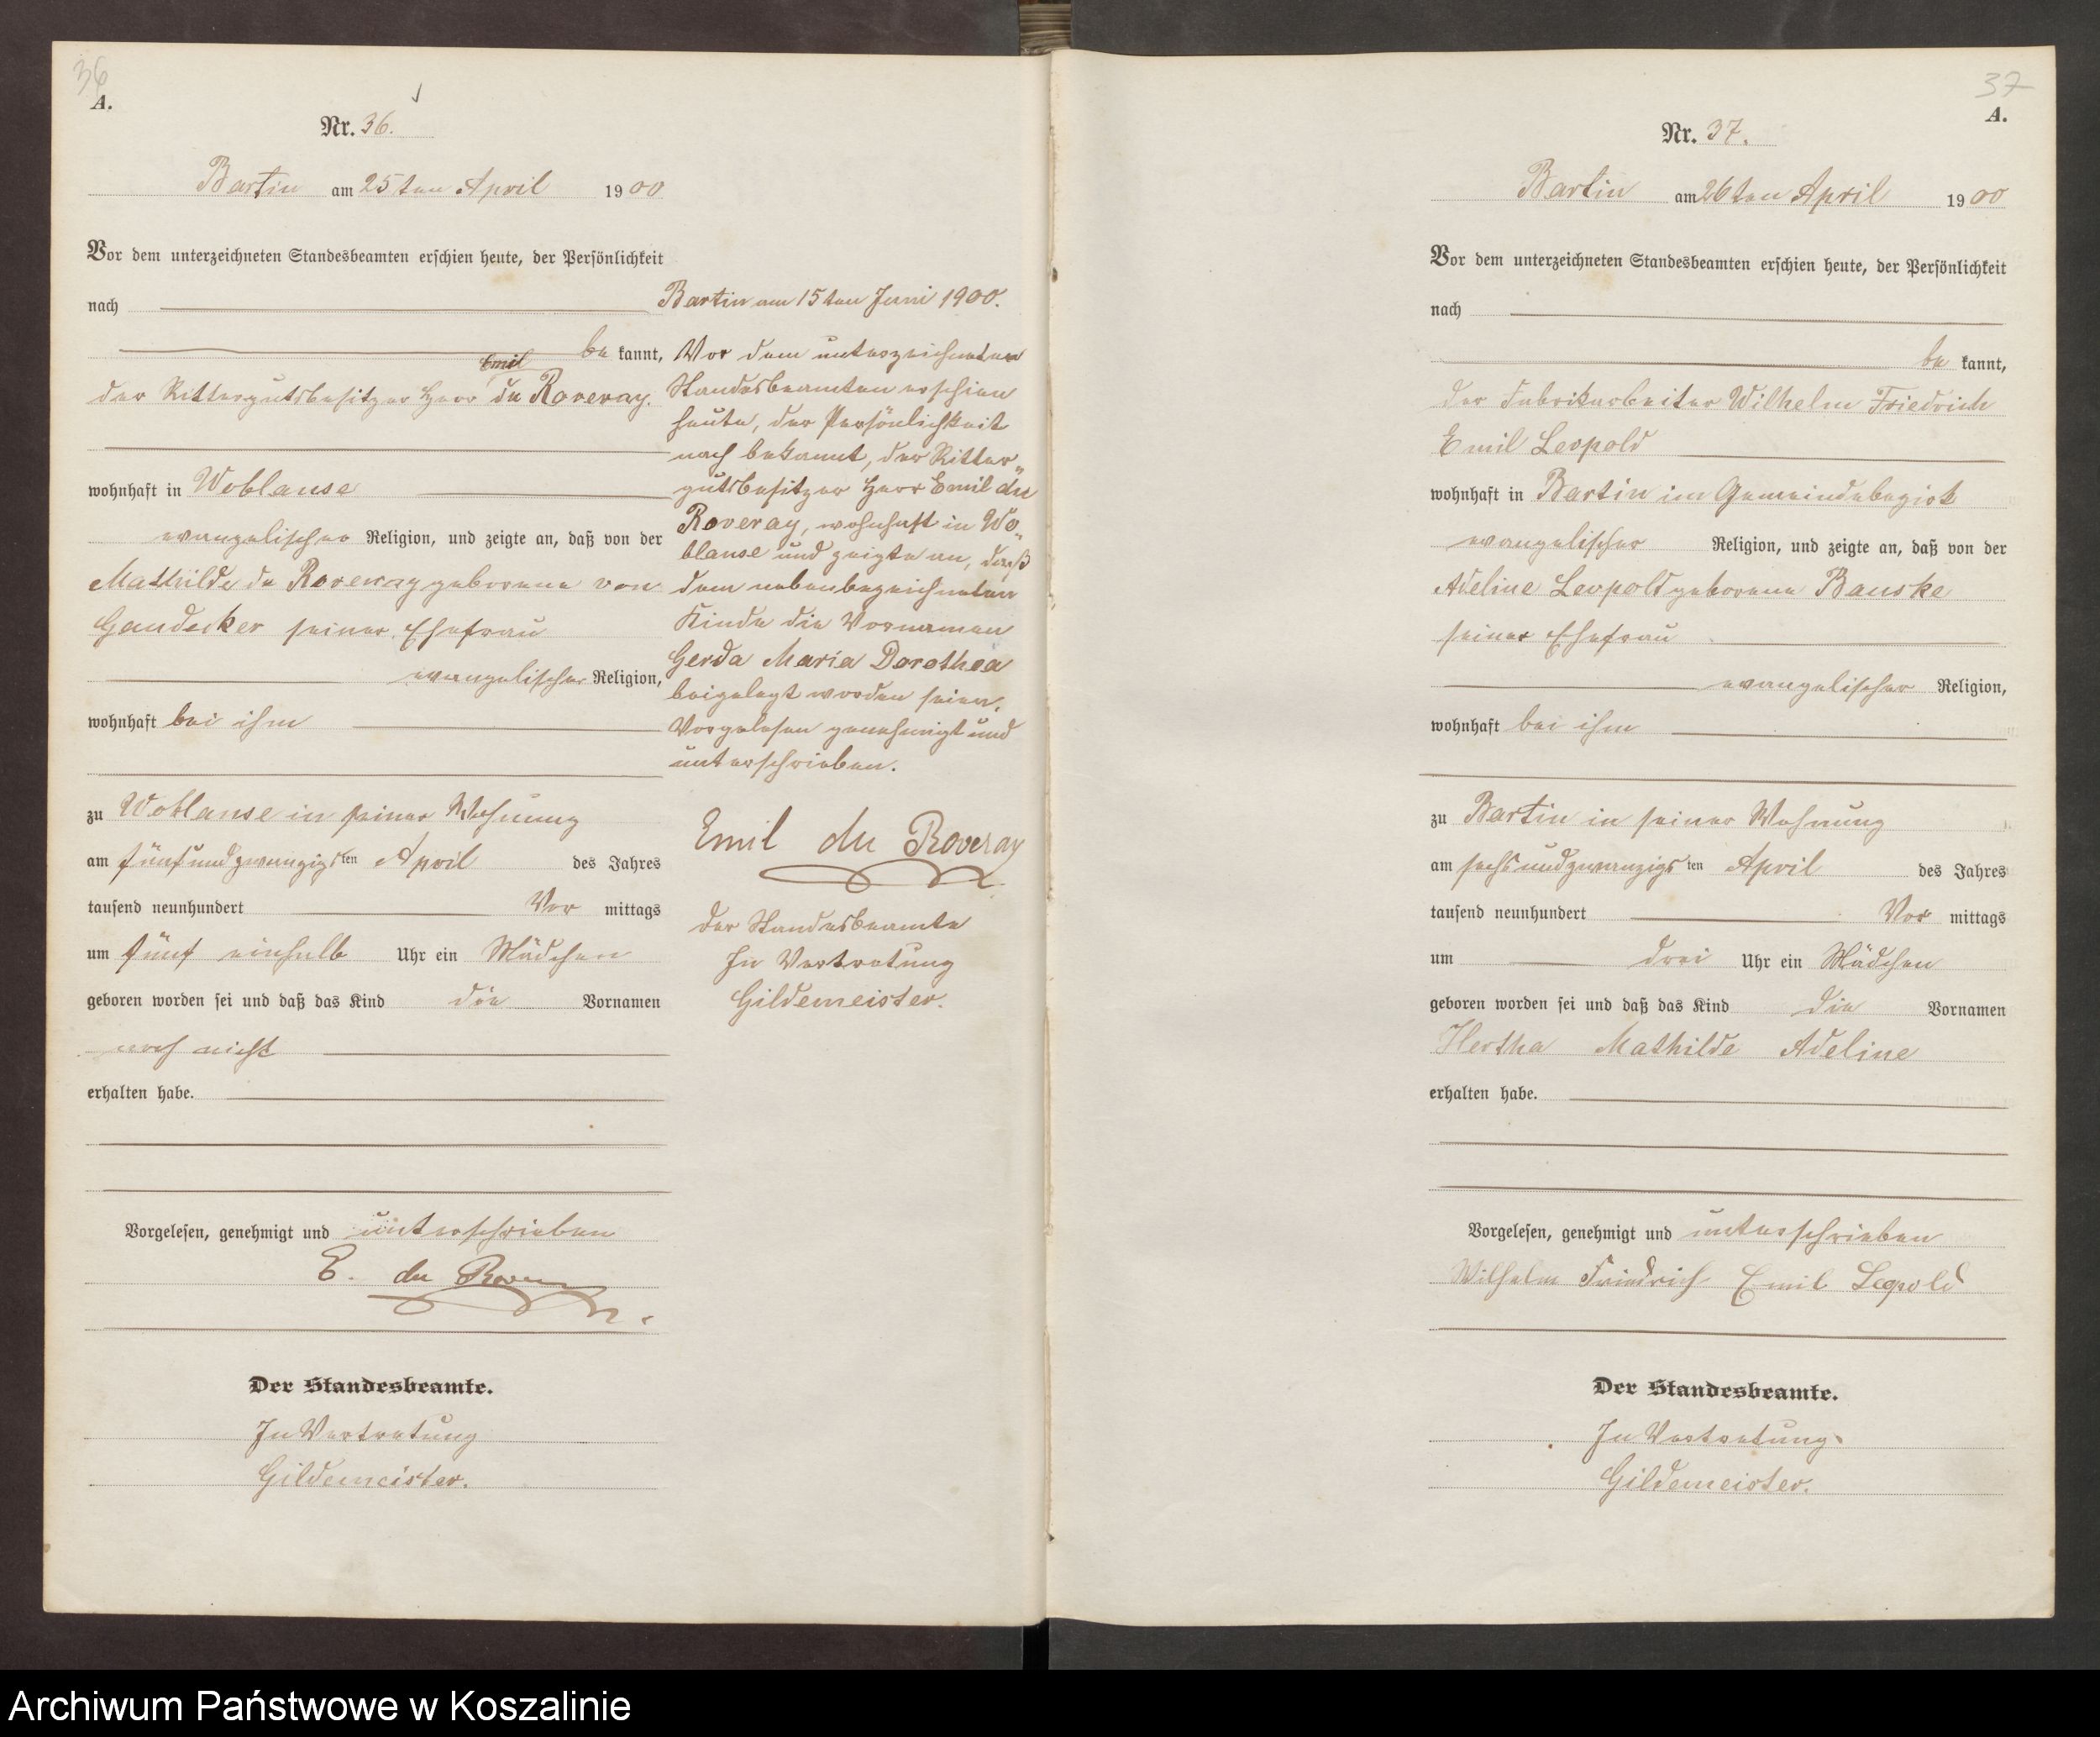 36
A.
Nr. 36.
Bartin am 25ten April 1900
Vor dem unterzeichneten Standesbeamten erschien heute, der Persönlichkeit
nach
be kannt,
Emil
der Rittergutsbesitzer Herr du Roveray.
wohnhaft in Woblanse
evangelischer Religion, und zeigte an, daß von der
Mathilde du Roveray geborene von
Gaudecker seiner Ehefrau
evangelischer Religion,
wohnhaft bei ihm
zu Woblanse in seiner Wohnung
am fünfundzwanzigsten April des Jahres
tausend neunhundert Vor mittags
um fünf einhalb Uhr ein Mädchen
geboren worden sei und daß das Kind die Vornamen
noch nicht
erhalten habe.
Vorgelesen, genehmigt und unterschrieben
E. du Roveray
Der Standesbeamte.
In Vertretung
Gildemeister.
Bartin am 15ten Juni 1900.
Vor dem unterzeichneten
Standesbeamten erschien
heute, der Persönlichkeit
nach bekannt, der Ritter-
gutsbesitzer Herr Emil du
Roveray, wohnhaft in Wo-
blanse und zeigte an, daß
dem nebenbezeichneten
Kinde die Vornamen
Gerda Maria Dorothea
beigelegt worden seien.
Vorgelesen genehmigt und
unterschrieben.
Emil du Roveray
Der Standesbeamte
In Vertretung
Gildemeister.
37
A.
Nr. 37.
Bartin am 26ten April 1900
Vor dem unterzeichneten Standesbeamten erschien heute, der Persönlichkeit
nach
be kannt,
der Fabrikarbeiter Wilhelm Friedrich
Emil Leopold
wohnhaft in Bartin im Gemeindebezirk
evangelischer Religion, und zeigte an, daß von der
Adeline Leopold geborene Banske
seiner Ehefrau
evangelischer Religion,
wohnhaft bei ihm
zu Bartin in seiner Wohnung
am sechsundzwanzigsten April des Jahres
tausend neunhundert Vor mittags
um drei Uhr ein Mädchen
geboren worden sei und daß das Kind die Vornamen
Hertha Mathilde Adeline
erhalten habe.
Vorgelesen, genehmigt und unterschrieben
Wilhelm Friedrich Emil Leopold
Der Standesbeamte.
In Vertretung
Gildemeister.
Archiwum Państwowe w Koszalinie